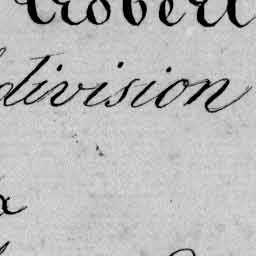 Robert
division